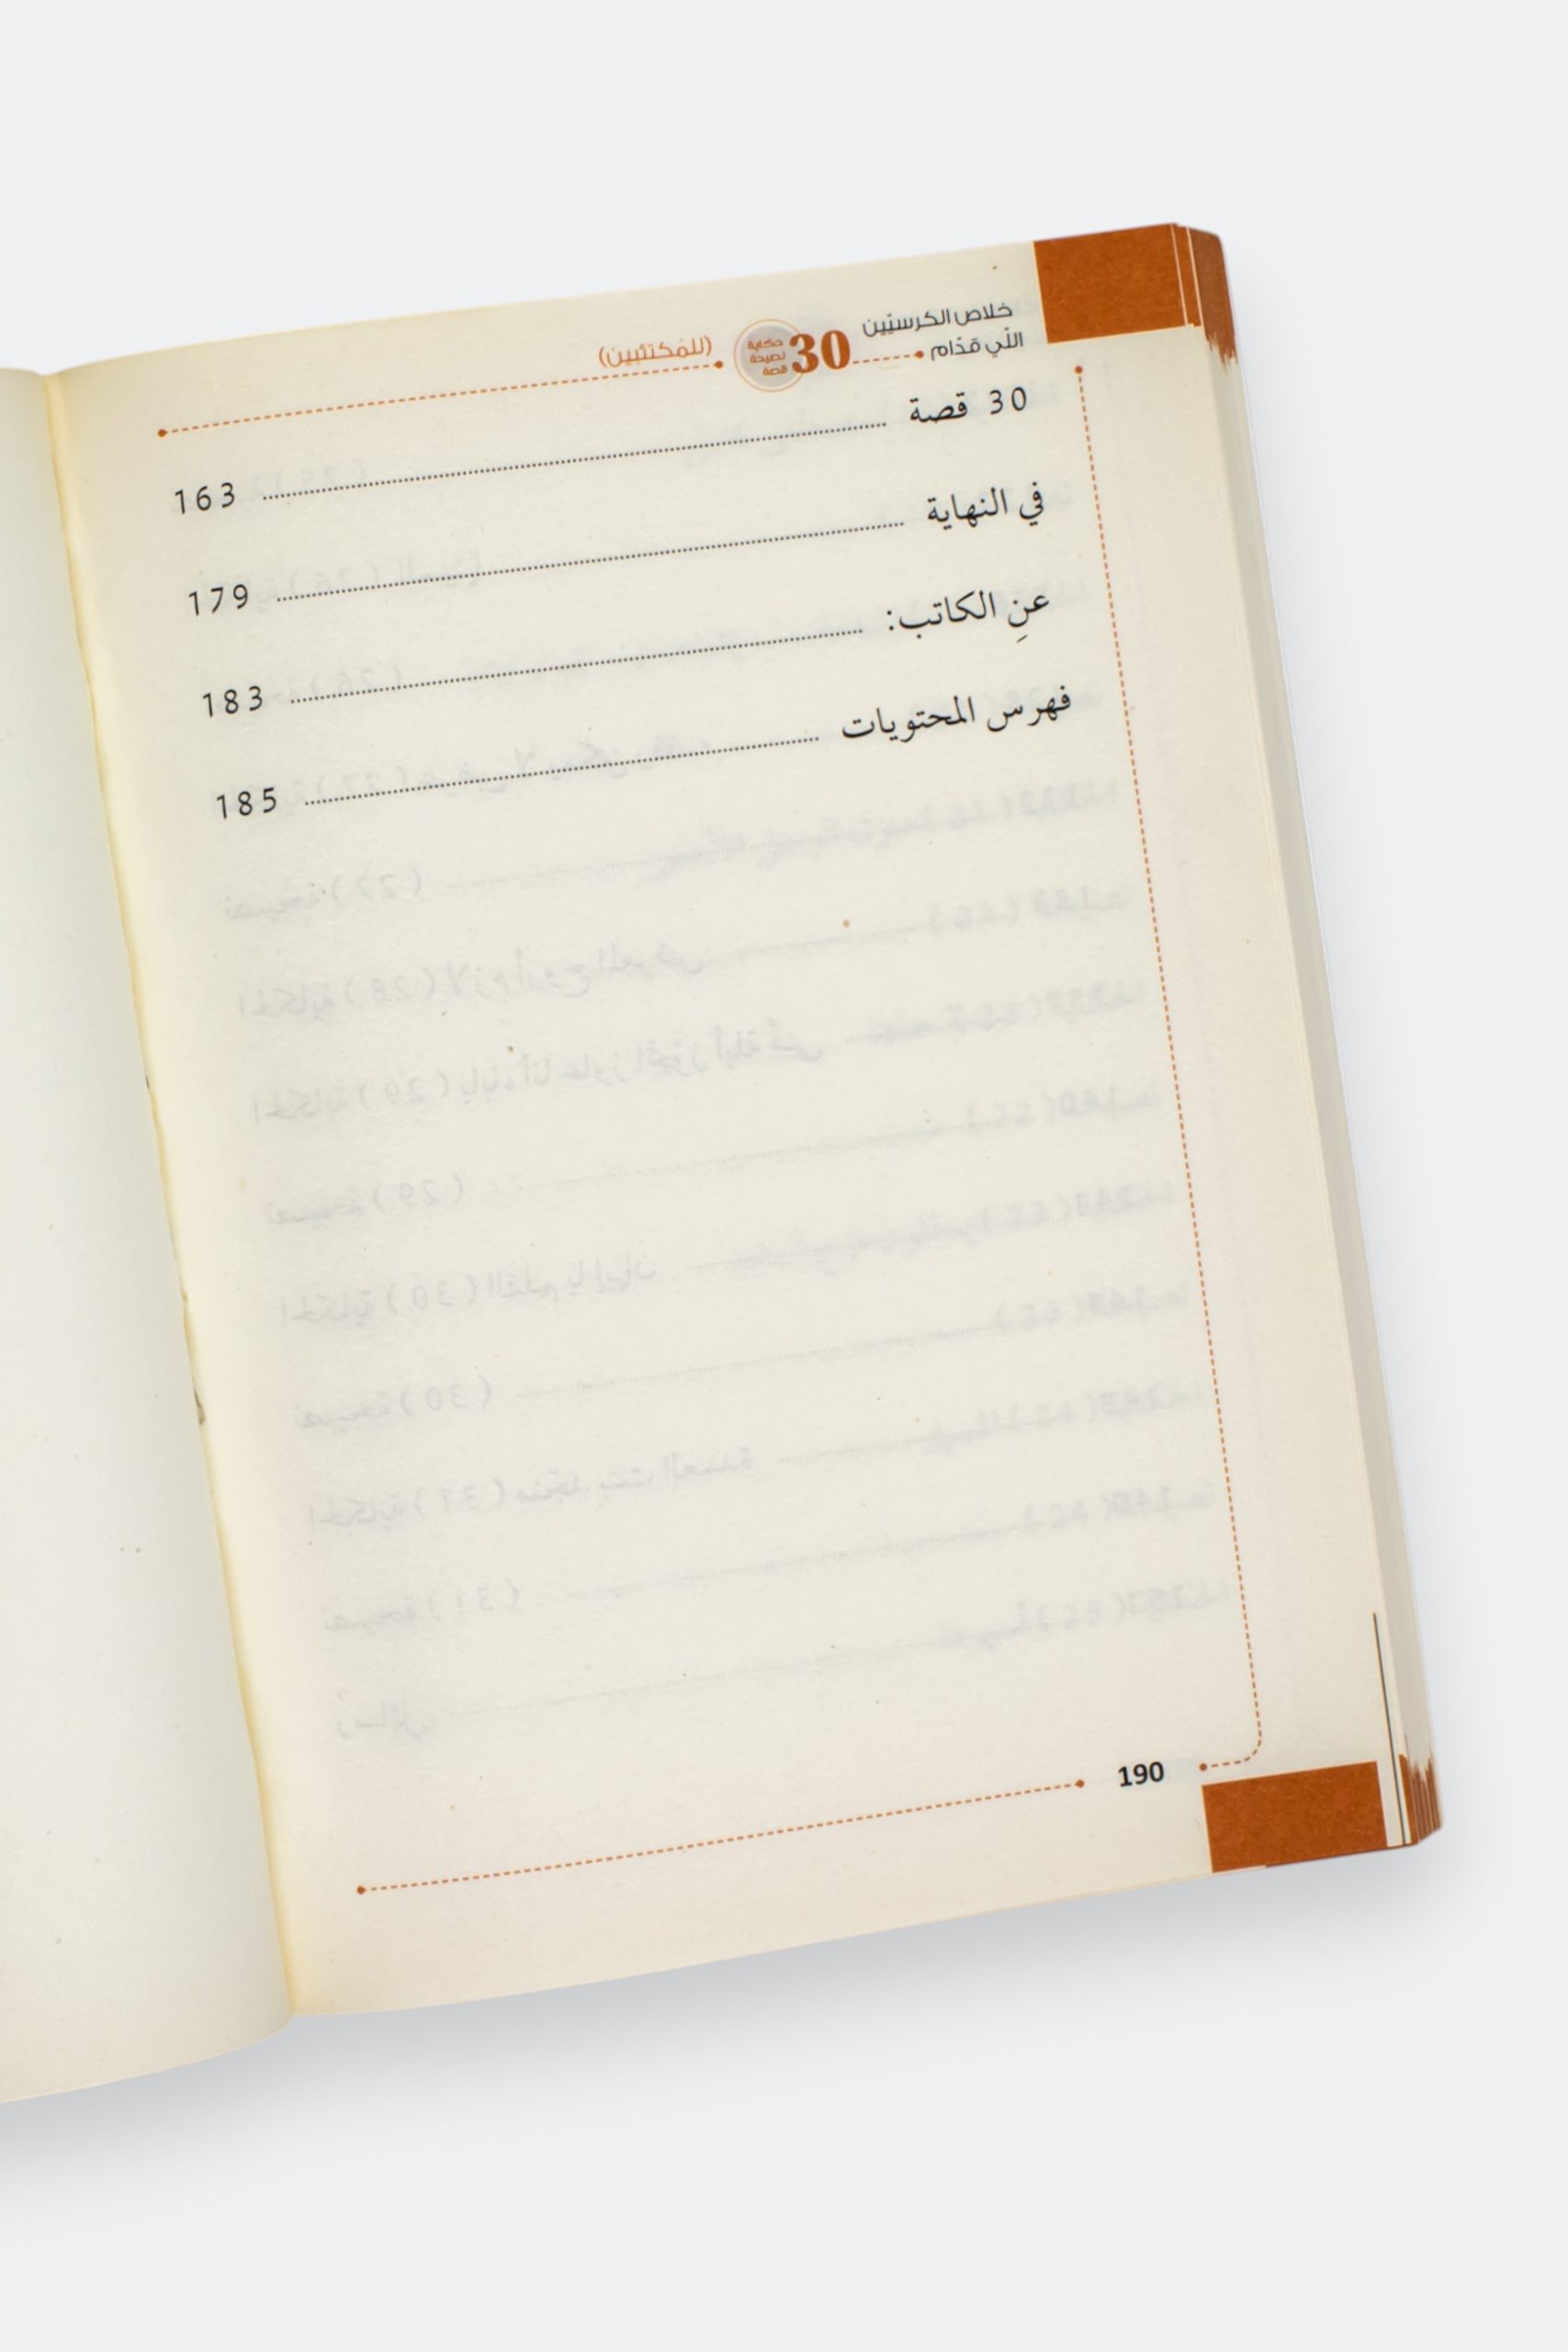 خلاص الكرسيّين
اللّي قدّام
30
حكاية
نصيحة
قصة
(للمُكتئبين)
30 قصة ........ 163
في النهاية ........ 179
عنِ الكاتب: ........ 183
فهرس المحتويات ........ 185
190